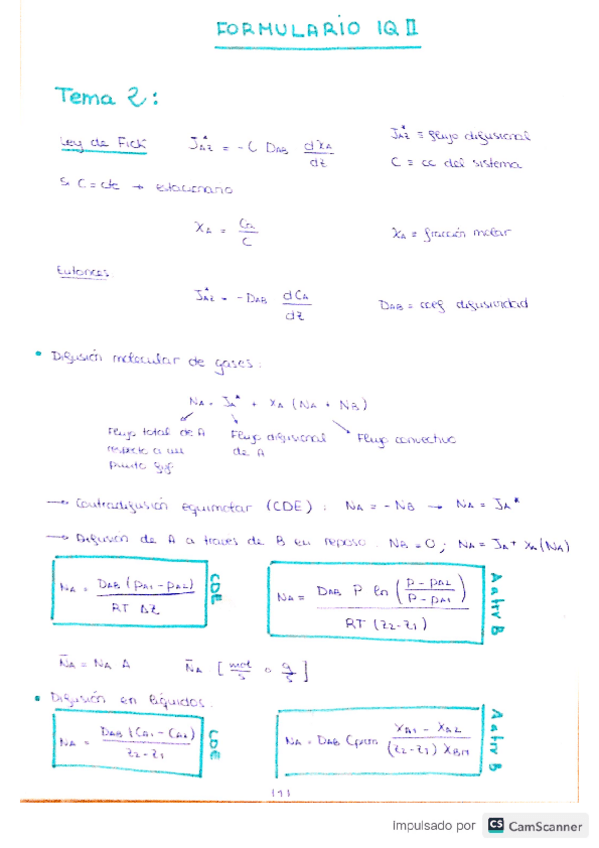 FORMULARIO IQ II
Tema 2:
Ley de Fick J*AZ = - C DAB dXA/dz J*AZ ≡ flujo difusional
C ≡ cc del sistema
Si C = cte → estacionario
XA = CA/C XA ≡ fracción molar
Entonces
J*AZ = - DAB dCA/dz DAB ≡ coef difusividad
• Difusión molecular de gases:
NA = JA* + XA (NA + NB)
Flujo total de A respecto a un punto fijo
Flujo difusional de A
Flujo convectivo
→ Contradifusión equimolar (CDE): NA = - NB → NA = JA*
→ Difusión de A a traves de B en reposo. NB = 0; NA = JA + XA (NA)
NA = DAB (PA1 - PA2) / RT ΔZ CDE
NA = DAB P ln (P - PA2 / P - PA1) / RT (Z2-Z1) A a trv B
N̄A = NA A N̄A [mol/s o g/s]
• Difusión en líquidos.
NA = DAB (CA1 - CA2) / Z2-Z1 CDE
NA = DAB Cprom XA1 - XA2 / (Z2-Z1) XBM A a trv B
Impulsado por CS CamScanner